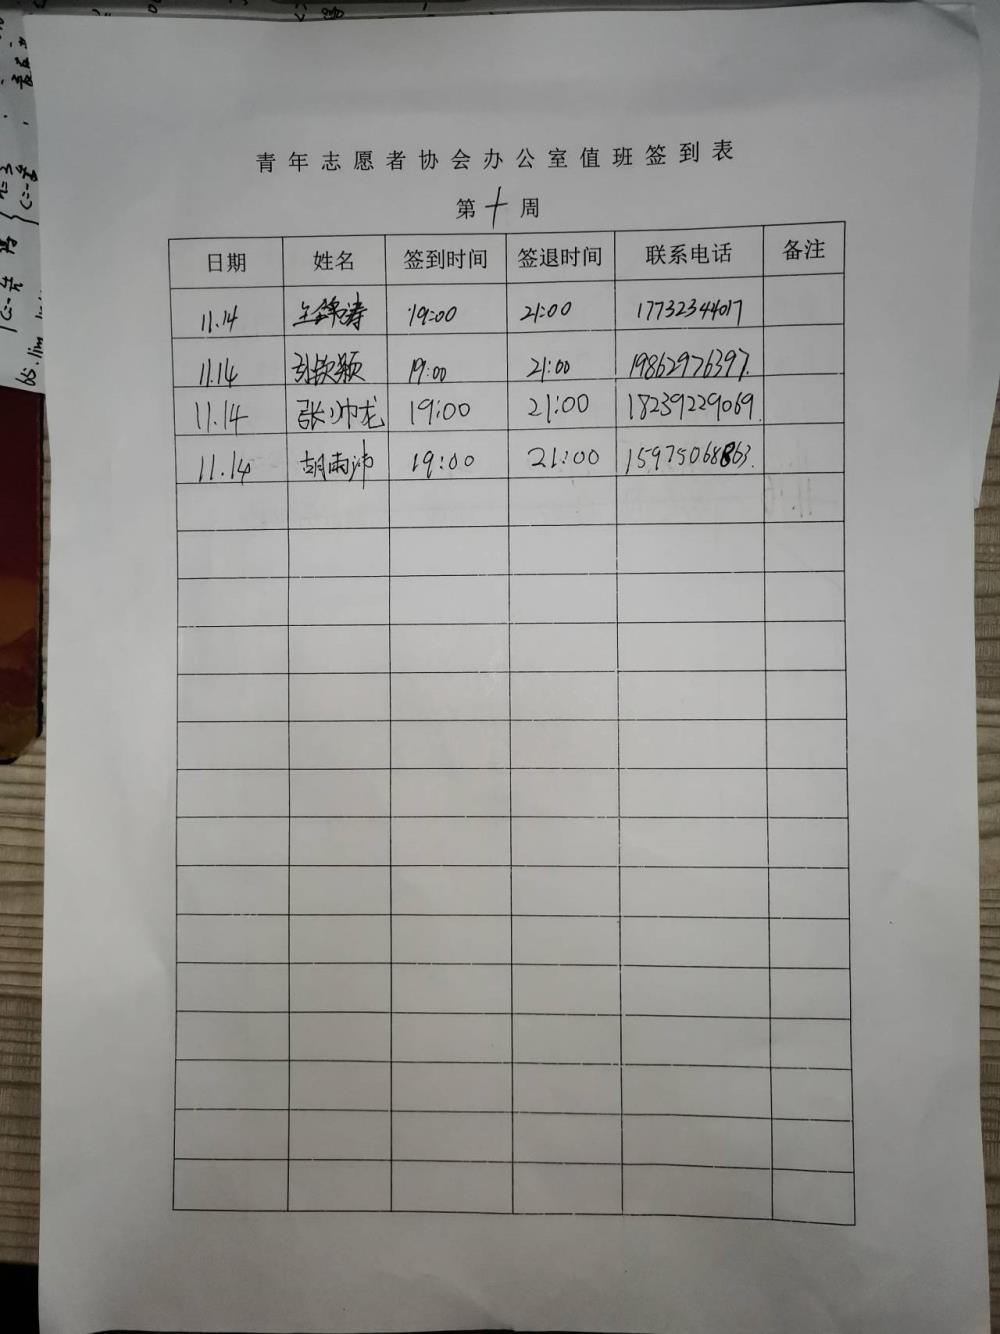 青年志愿者协会办公室值班签到表
第十周
日期 姓名 签到时间 签退时间 联系电话 备注
11.14 王锦涛 19:00 21:00 17732344017
11.14 19:00 21:00 19862976397.
11.14 张帅龙 19:00 21:00 18239229069.
11.14 胡雨沛 19:00 21:00 15975068863.